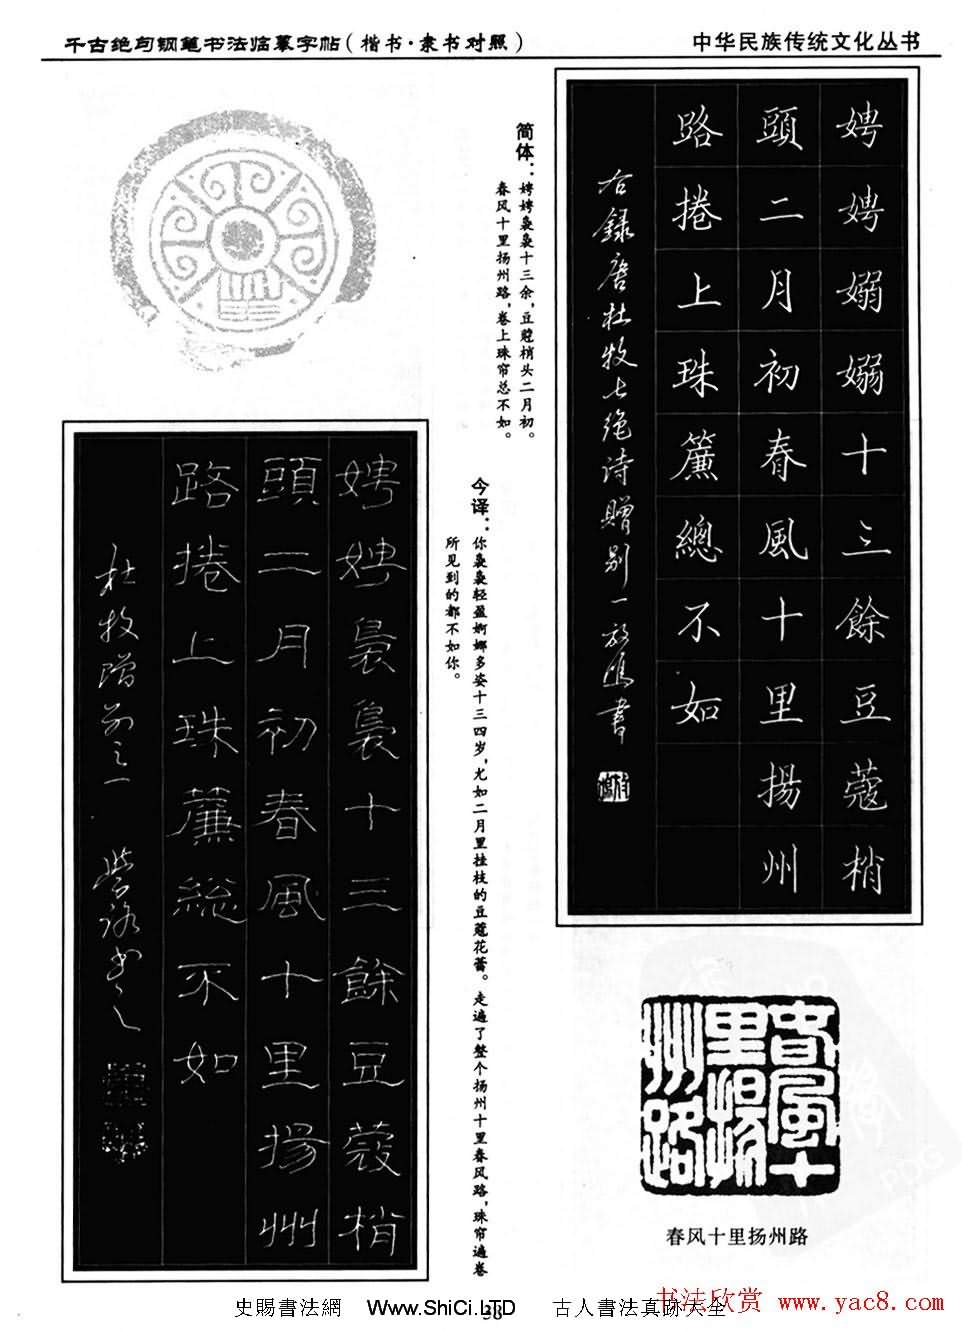 千古绝句钢笔书法临摹字帖(楷书·隶书对照)
中华民族传统文化丛书
娉娉嫋嫋十三餘豆蔻梢
頭二月初春風十里揚州
路捲上珠簾總不如
右録唐杜牧七绝诗赠别一放鸣書
简体:娉娉袅袅十三余,豆蔻梢头二月初。
春风十里扬州路,卷上珠帘总不如。
今译:你袅袅轻盈婀娜多姿十三四岁,尤如二月里挂枝的豆蔻花蕾。走遍了整个扬州十里春风路,珠帘遍卷
所见到的都不如你。
娉娉裊裊十三餘豆蔻梢
頭二月初春風十里揚州
路捲上珠簾總不如
杜牧赠别之一
春風十里揚州路
春风十里扬州路
史賜書法網 Www.ShiCi.LTD 古人書法真跡大全
38
书法欣赏 www.yac8.com